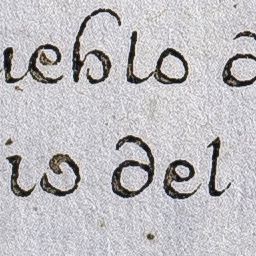 ueblo d
io del